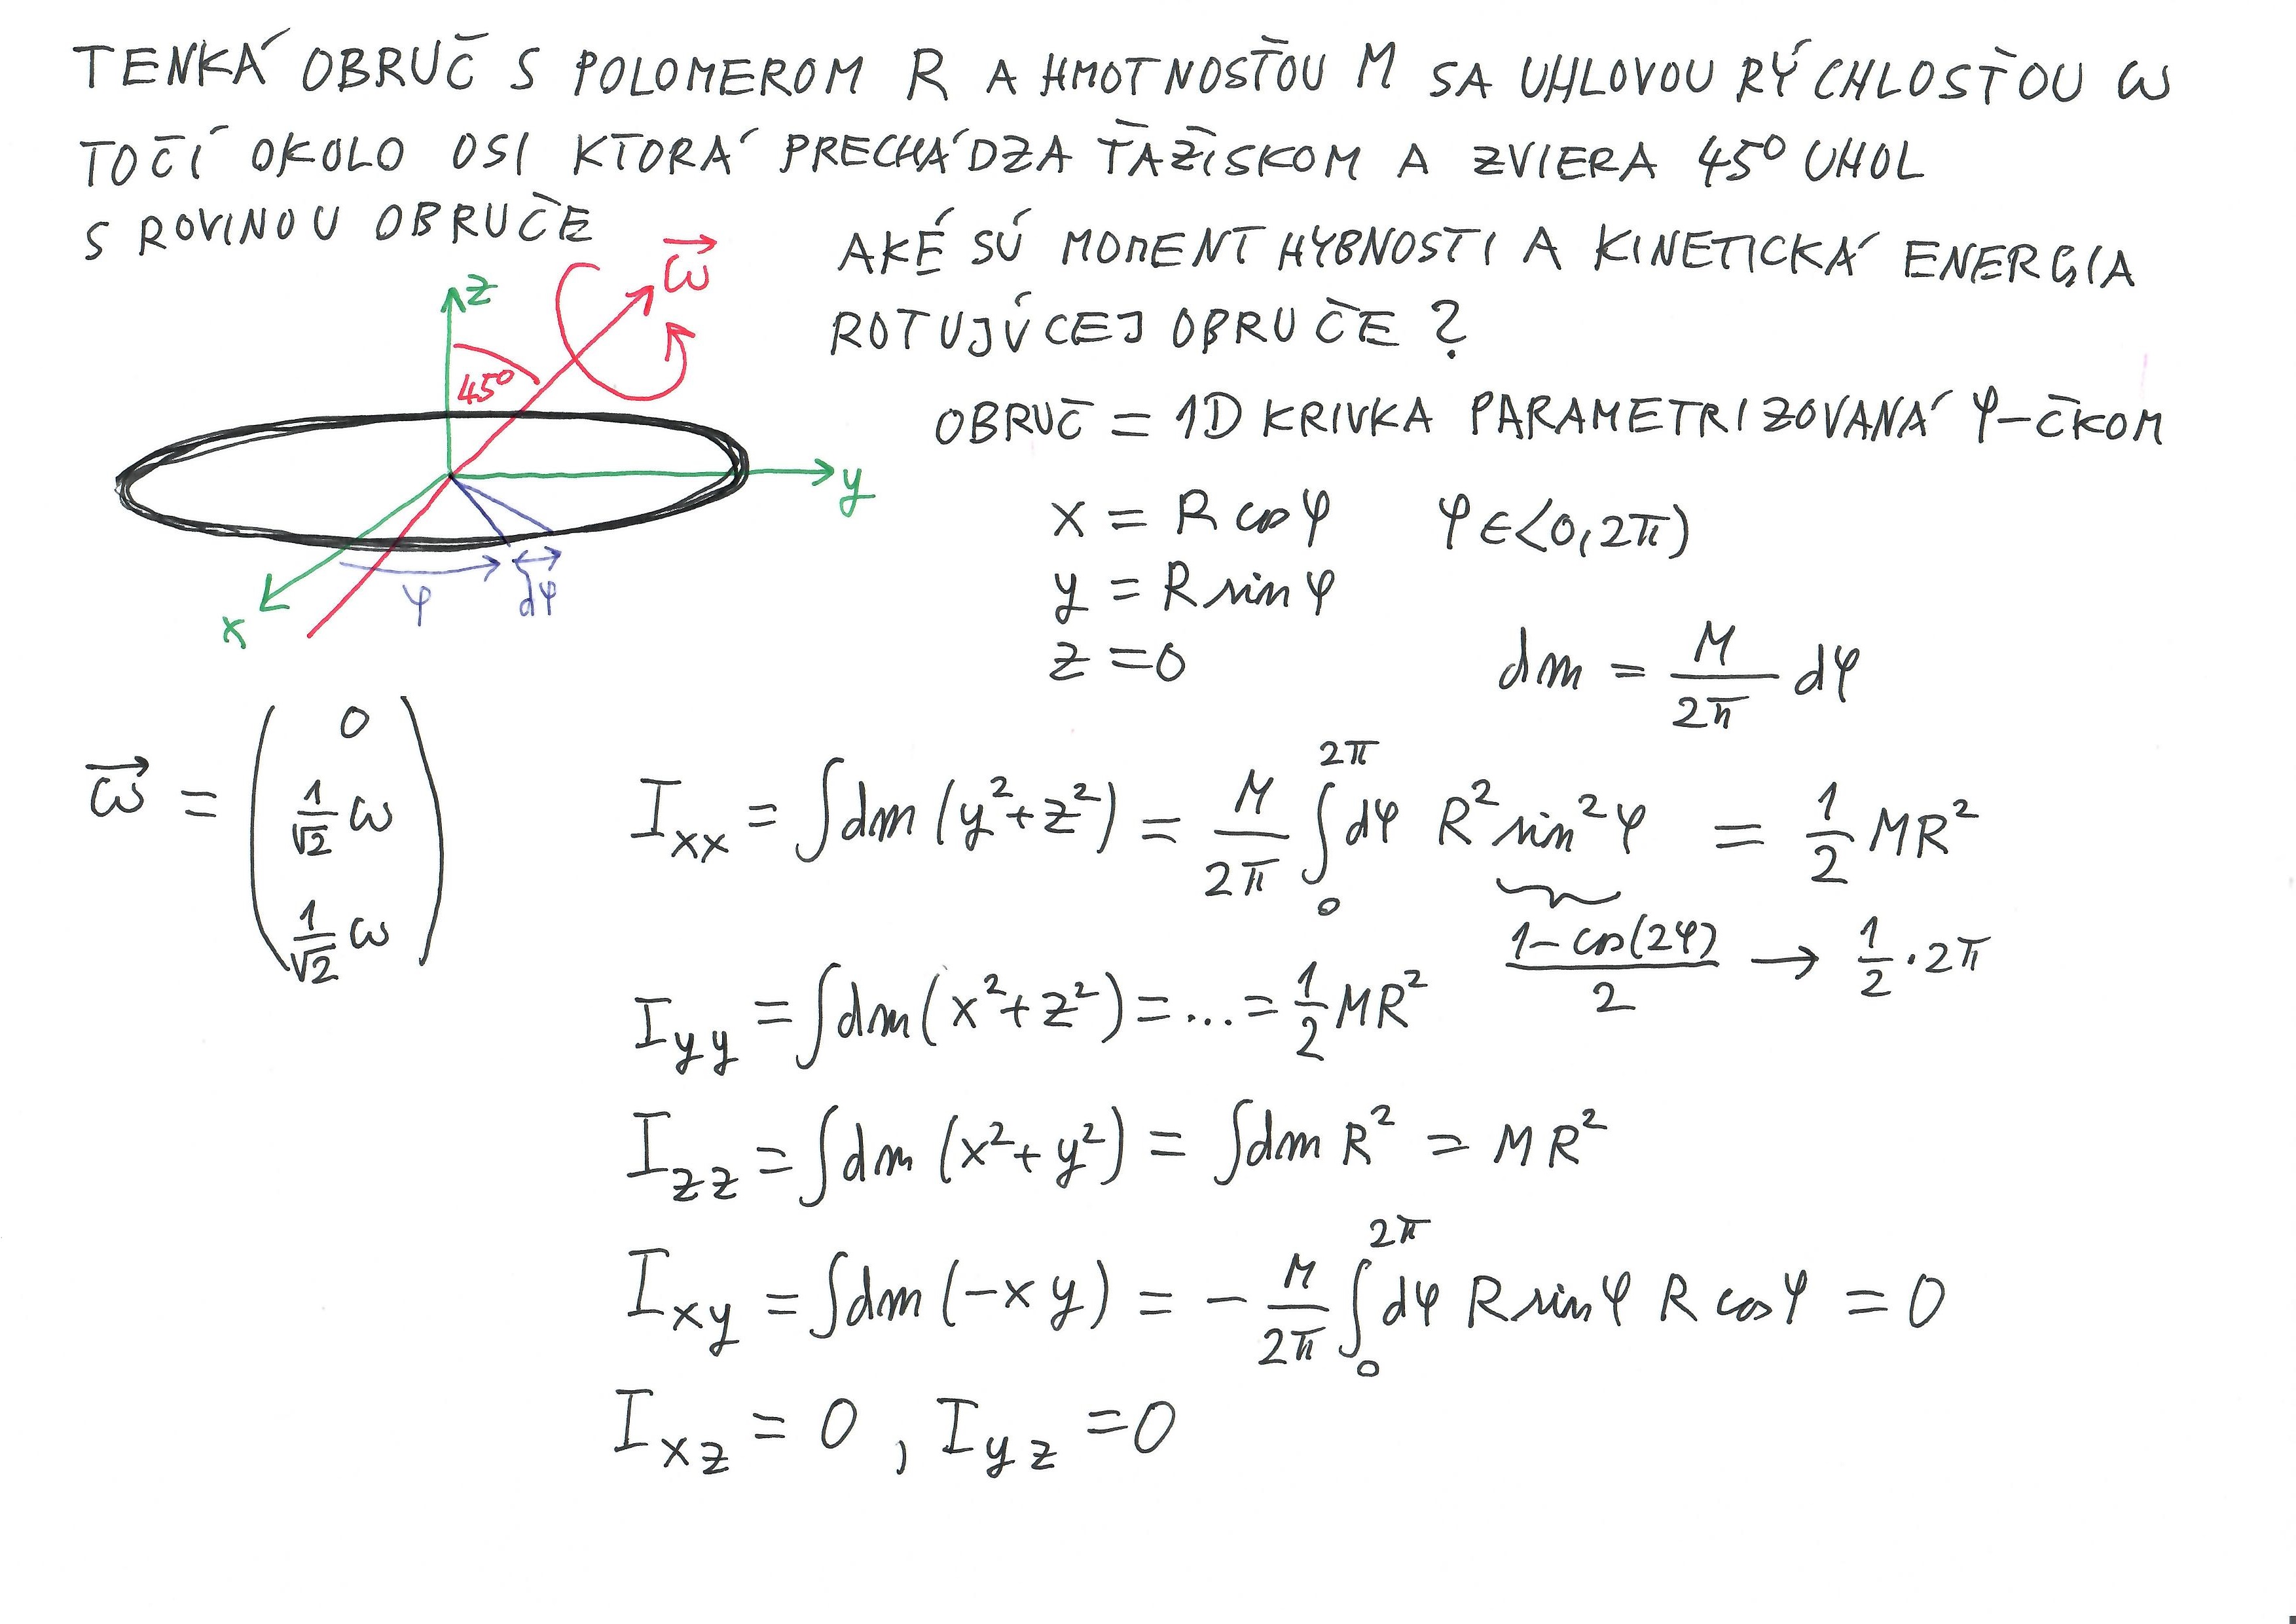 TENKÁ OBRUČ S POLOMEROM R A HMOTNOSŤOU M SA UHLOVOU RÝCHLOSŤOU ω
TOČÍ OKOLO OSI KTORÁ PRECHÁDZA ŤAŽISKOM A ZVIERA 45° UHOL
S ROVINOU OBRUČE
AKÉ SÚ MOMENT HYBNOSTI A KINETICKÁ ENERGIA
ROTUJÚCEJ OBRUČE ?
z
ω⃗
45°
y
x
φ
dφ
OBRUČ = 1D KRIVKA PARAMETRIZOVANÁ φ-ČKOM
x = R cos φ φ ∈ <0, 2π)
y = R sin φ
z = 0 dm = M/2π dφ
ω⃗ = (0, 1/√2 ω, 1/√2 ω)
I_xx = ∫dm (y² + z²) = M/2π ∫₀^2π dφ R² sin² φ = 1/2 MR²
1 - cos(2φ)/2 → 1/2 · 2π
I_yy = ∫dm (x² + z²) = ... = 1/2 MR²
I_zz = ∫dm (x² + y²) = ∫dm R² = MR²
I_xy = ∫dm (-x y) = - M/2π ∫₀^2π dφ R sin φ R cos φ = 0
I_xz = 0 , I_yz = 0